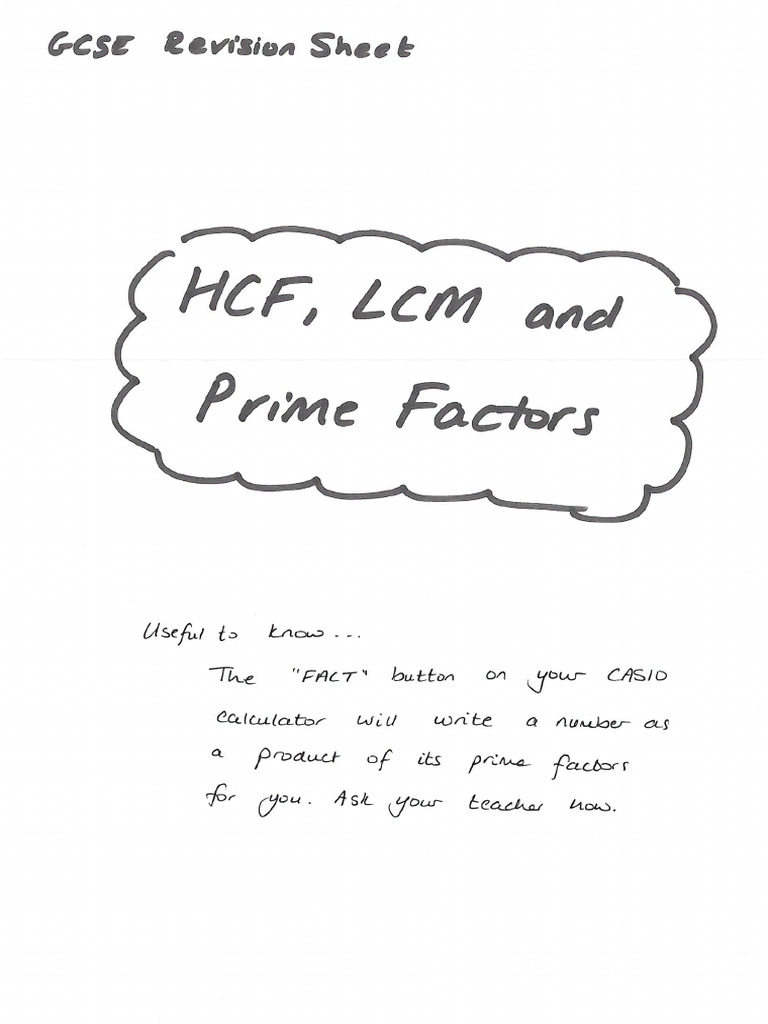 GCSE Revision Sheet
HCF, LCM and
Prime Factors
Useful to know...
The "FACT" button on your CASIO
calculator will write a number as
a product of its prime factors
for you. Ask your teacher how.